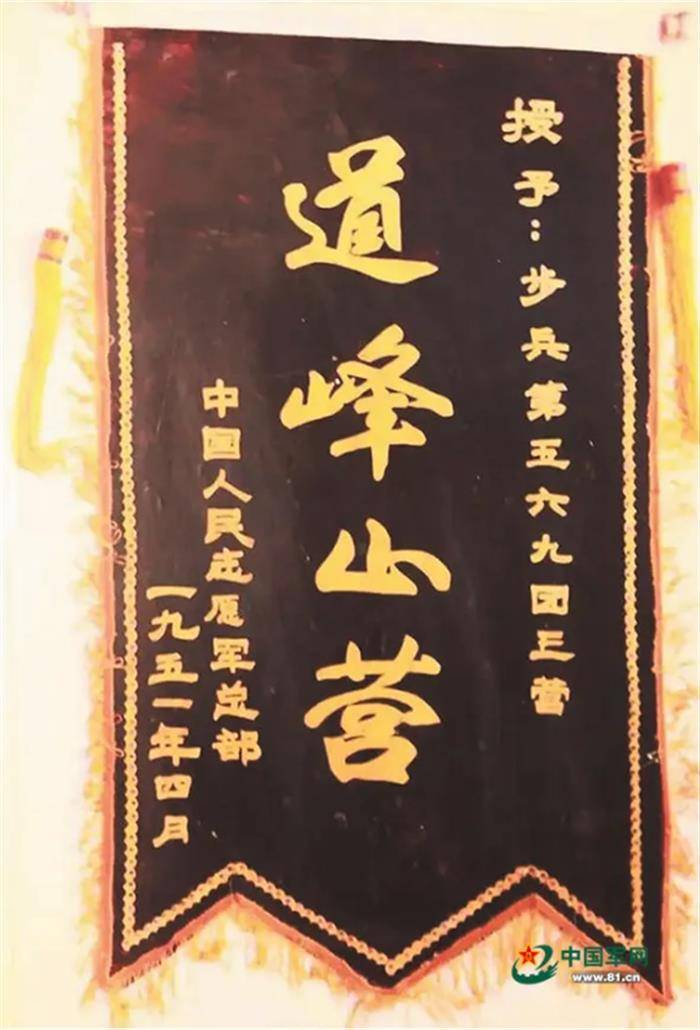 授予：步兵第五六九团三营
道峰山营
中国人民志愿军总部
一九五一年四月
中国军网
www.81.cn